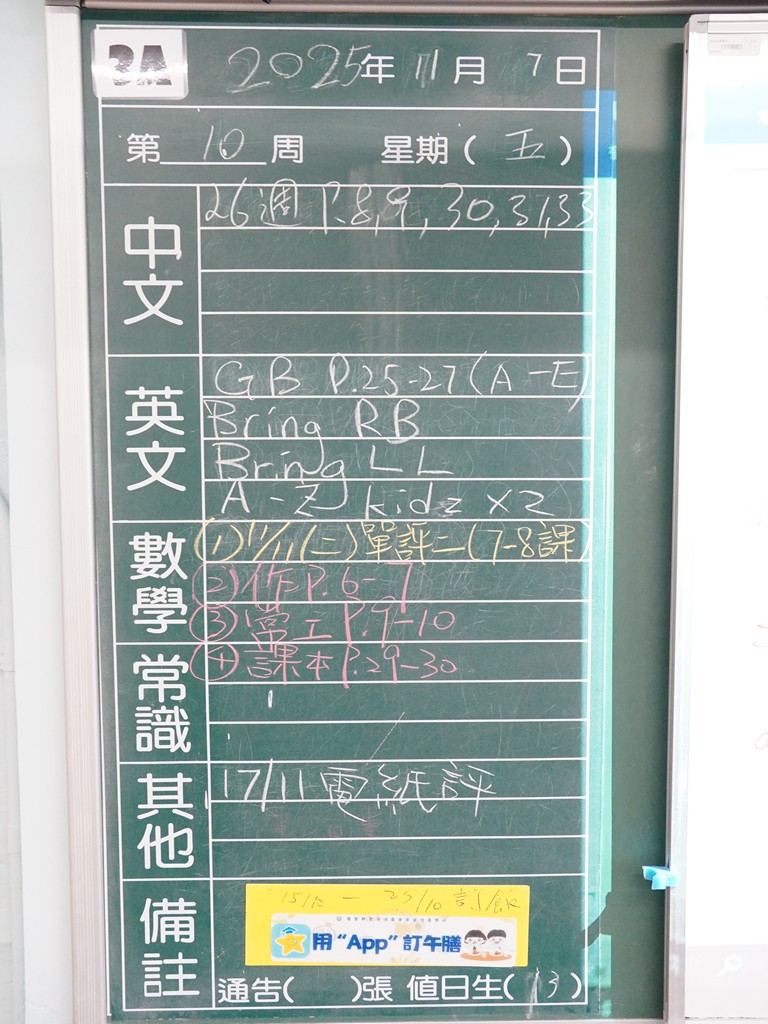 3A
2025年 11月 7日
第 10 周 星期(五)
中文
26週 P.8,9,30,31,33
英文
GB P.25-27(A-E)
Bring RB
Bring LL
A-Z kidz x2
數學
(1) 11/11(二)單評二(7-8課)
(2)作P.6-7
③ 常工 P.9-10
④ 課本P.29-30
常識
其他
17/11 電紙評
備註
訂飯
用“App”訂午膳
通告( )張 值日生(13)